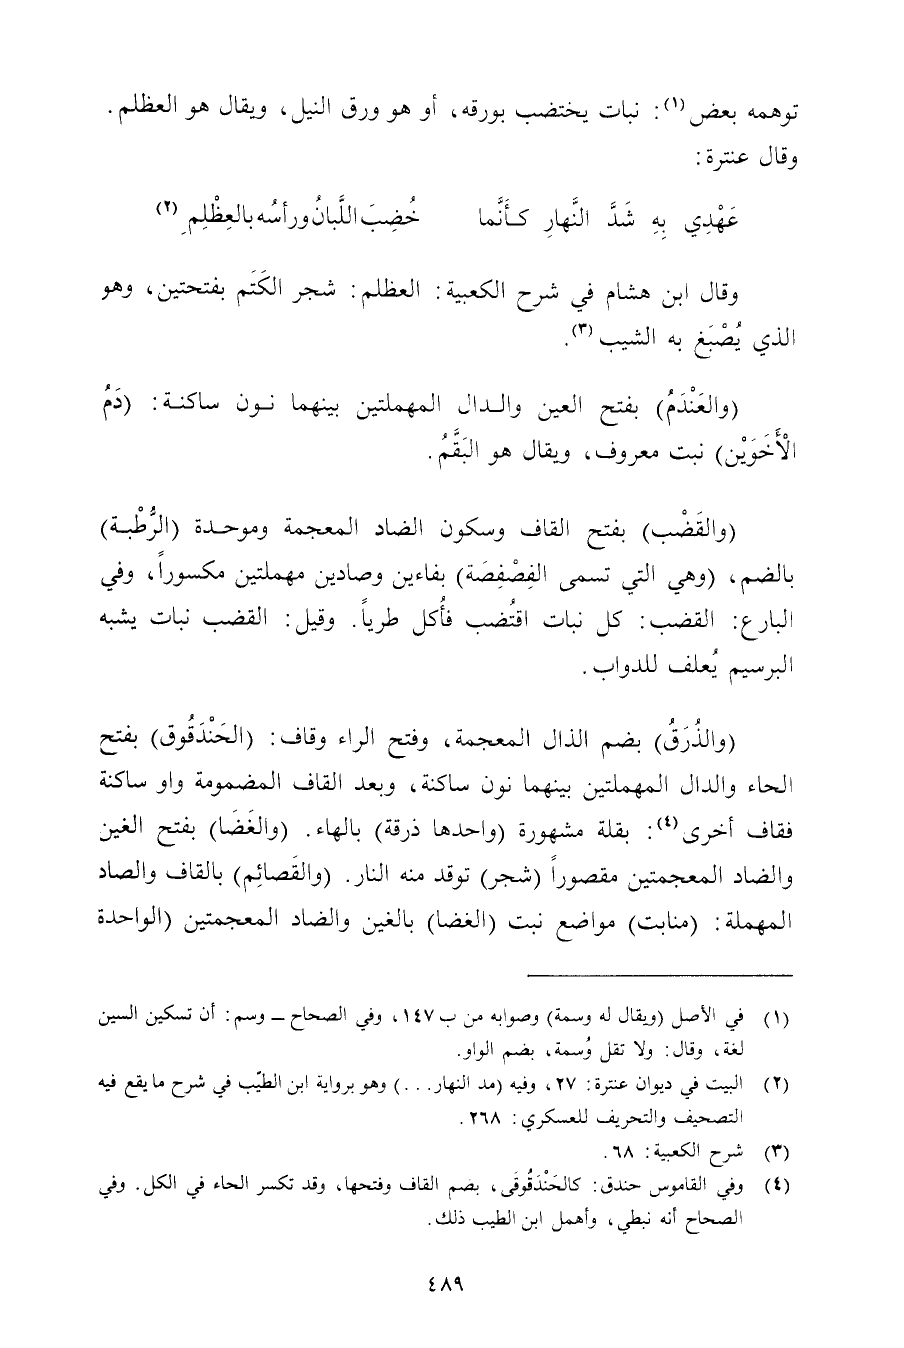 توهمه بعض(١): نبات يختضب بورقه، أو هو ورق النيل، ويقال هو العظلم.
وقال عنترة:
عَهْدِي بِهِ شَدَّ النَّهارِ كَأَنَّما خُضِبَ اللَّبانُ ورأسُه بالعِظْلِمِ(٢)
وقال ابن هشام في شرح الكعبية: العظلم: شجر الكَتَم بفتحتين، وهو
الذي يُصْبَغ به الشيب(٣).
(والعَنْدَمُ) بفتح العين والدال المهملتين بينهما نون ساكنة: (دَمُ
الْأَخَوَيْن) نبت معروف، ويقال هو البَقَّمُ.
(والقَضْب) بفتح القاف وسكون الضاد المعجمة وموحدة (الرُّطْبة)
بالضم، (وهي التي تسمى الفِصْفِصَة) بفاءين وصادين مهملتين مكسوراً، وفي
البارع: القضب: كل نبات اقتُضب فأُكل طرياً. وقيل: القضب نبات يشبه
البرسيم يُعلف للدواب.
(والذُرَقُ) بضم الذال المعجمة، وفتح الراء وقاف: (الحَنْدَقُوق) بفتح
الحاء والدال المهملتين بينهما نون ساكنة، وبعد القاف المضمومة واو ساكنة
فقاف أخرى(٤): بقلة مشهورة (واحدها ذرقة) بالهاء. (والغَضَا) بفتح الغين
والضاد المعجمتين مقصوراً (شجر) توقد منه النار. (والقَصائِم) بالقاف والصاد
المهملة: (منابت) مواضع نبت (الغضا) بالغين والضاد المعجمتين (الواحدة
(١) في الأصل (ويقال له وسمة) وصوابه من ب ١٤٧، وفي الصحاح ـ وسم: أن تسكين السين
لغة، وقال: ولا تقل وُسمة، بضم الواو.
(٢) البيت في ديوان عنترة: ٢٧، وفيه (مد النهار...) وهو برواية ابن الطيّب في شرح ما يقع فيه
التصحيف والتحريف للعسكري: ٢٦٨.
(٣) شرح الكعبية: ٦٨.
(٤) وفي القاموس حندق: كالحَنْدَقُوقَى، بضم القاف وفتحها، وقد تكسر الحاء في الكل. وفي
الصحاح أنه نبطي، وأهمل ابن الطيب ذلك.
٤٨٩